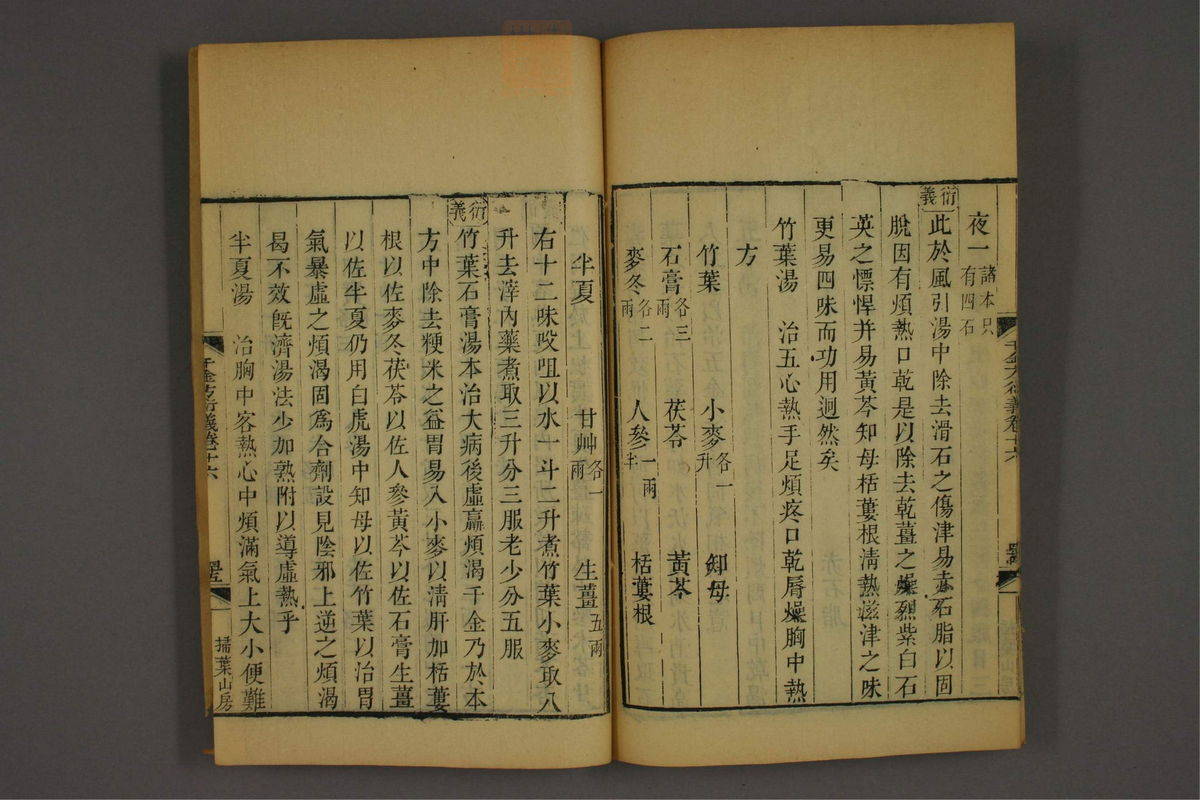 夜一諸本只有四石
衍義
此於風引湯中除去滑石之傷津易赤石脂以固
脫因有煩熱口乾是以除去乾薑之燥烈紫白石
英之慓悍并易黃芩知母栝蔞根清熱滋津之味
更易四味而功用迥然矣
竹葉湯 治五心熱手足煩疼口乾脣燥胸中熱
方
竹葉 小麥各一升 知母
石膏各三兩 茯苓 黃芩
麥冬各二兩 人參一兩半 栝蔞根
半夏 甘艸各一兩 生薑五兩
右十二味㕮咀以水一斗二升煮竹葉小麥取八
升去滓內藥煮取三升分三服老少分五服
衍義
竹葉石膏湯本治大病後虛羸煩渴千金乃於本
方中除去粳米之益胃易入小麥以清肝加栝蔞
根以佐麥冬茯苓以佐人參黃芩以佐石膏生薑
以佐半夏仍用白虎湯中知母以佐竹葉以治胃
氣暴虛之煩渴固為合劑設見陰邪上逆之煩渴
曷不效旣濟湯法少加熟附以導虛熱乎
半夏湯 治胸中客熱心中煩滿氣上大小便難
千金方衍義卷十六
掃葉山房